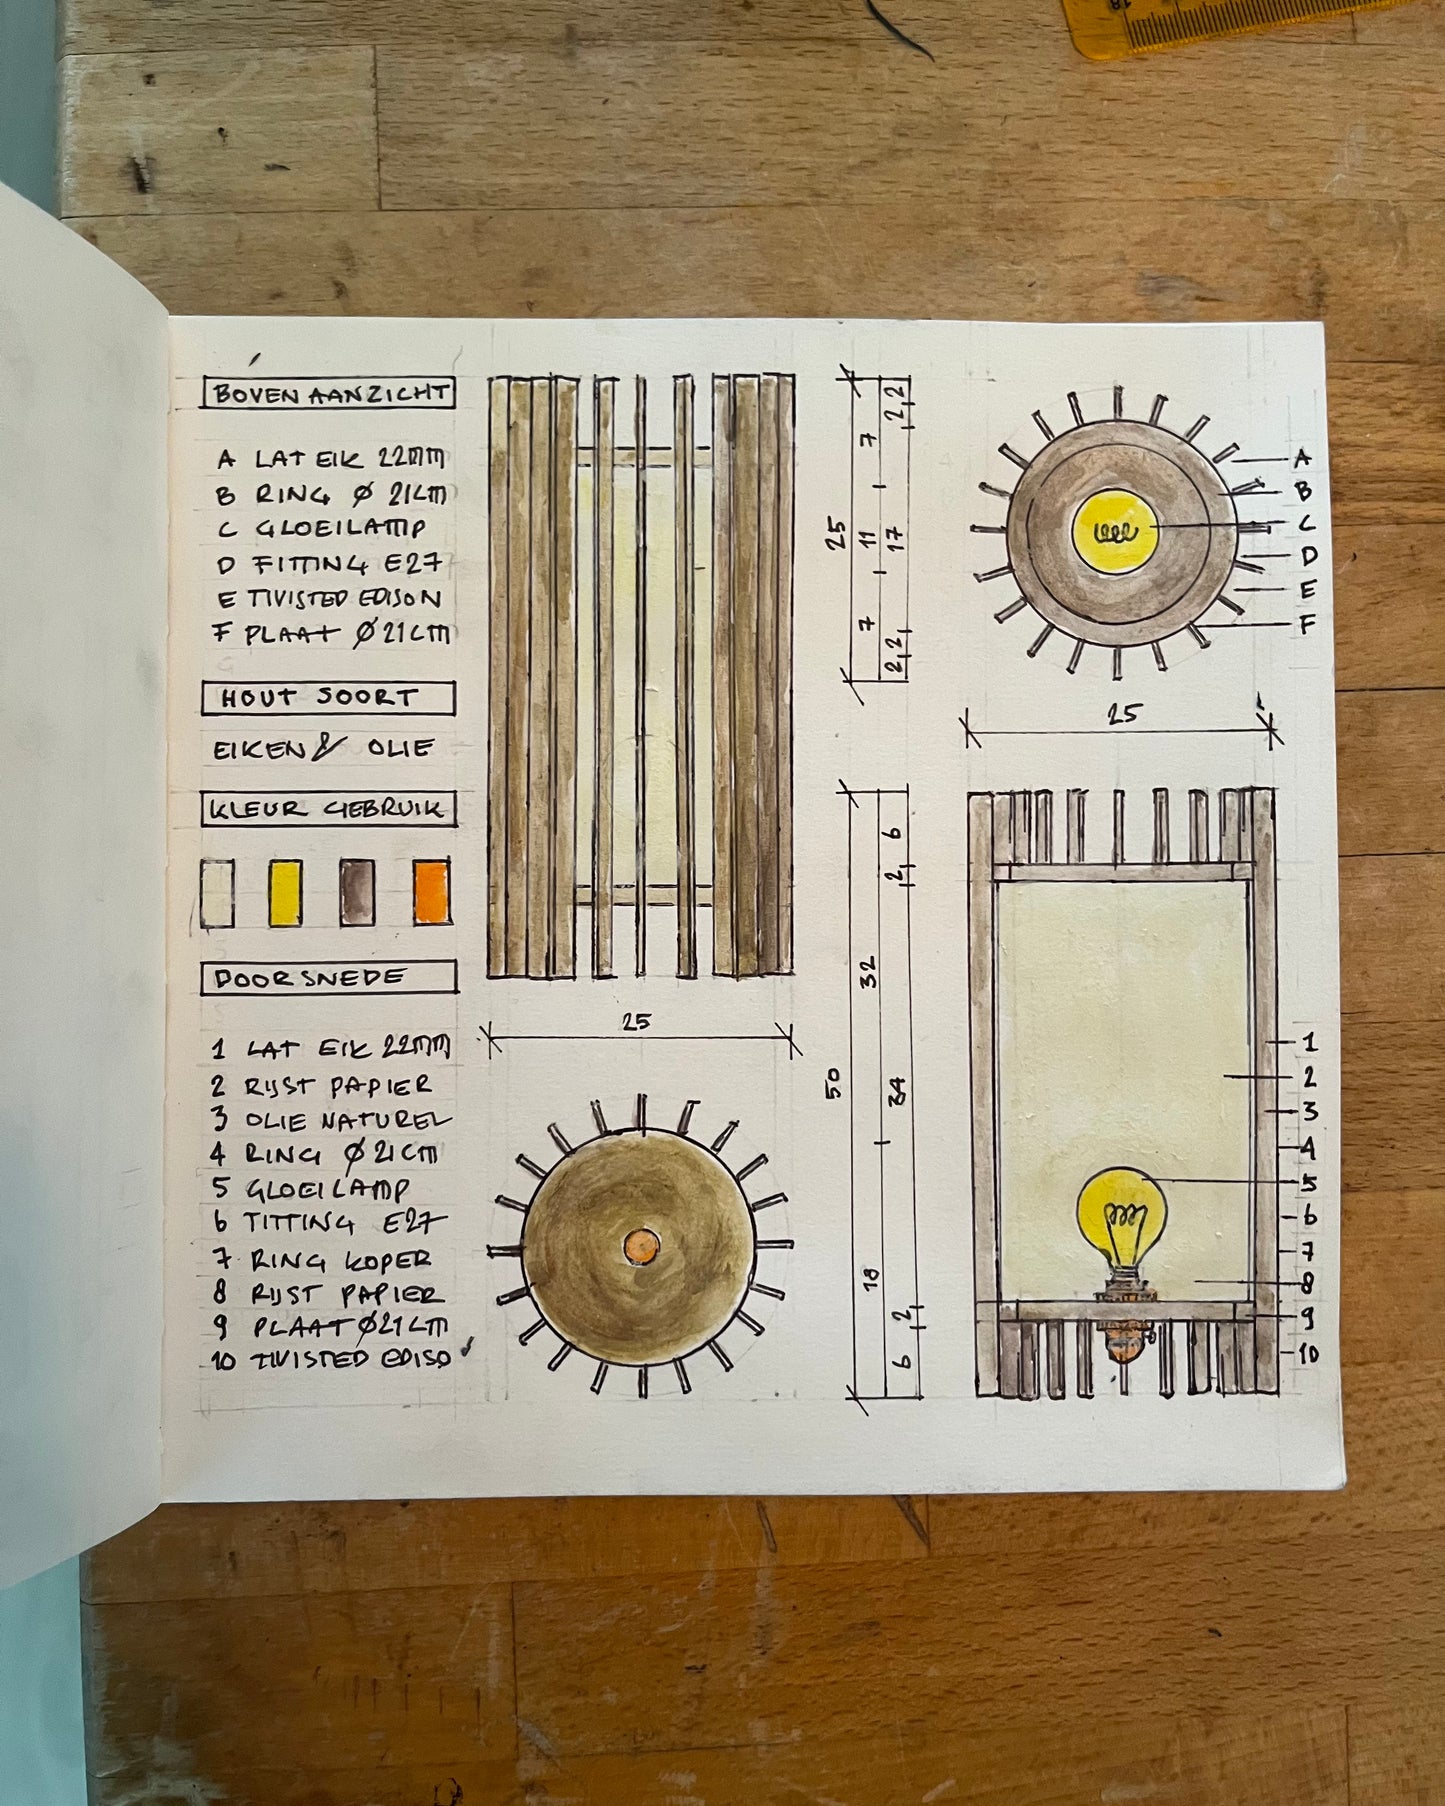 BOVEN AANZICHT
A LAT EIK 22MM
B RING Ø 21CM
C GLOEILAMP
D FITTING E27
E TWISTED EDISON
F PLAAT Ø21CM
HOUT SOORT
EIKEN & OLIE
KLEUR GEBRUIK
DOORSNEDE
1 LAT EIK 22MM
2 RIJST PAPIER
3 OLIE NATUREL
4 RING Ø 21CM
5 GLOEILAMP
6 TITTING E27
7 RING KOPER
8 RIJST PAPIER
9 PLAAT Ø21CM
10 TWISTED EDISO
25
25
7
11
7
2
2
17
2
2
A
B
C
D
E
F
25
50
32
18
6
2
34
2
6
1
2
3
4
5
6
7
8
9
10
18